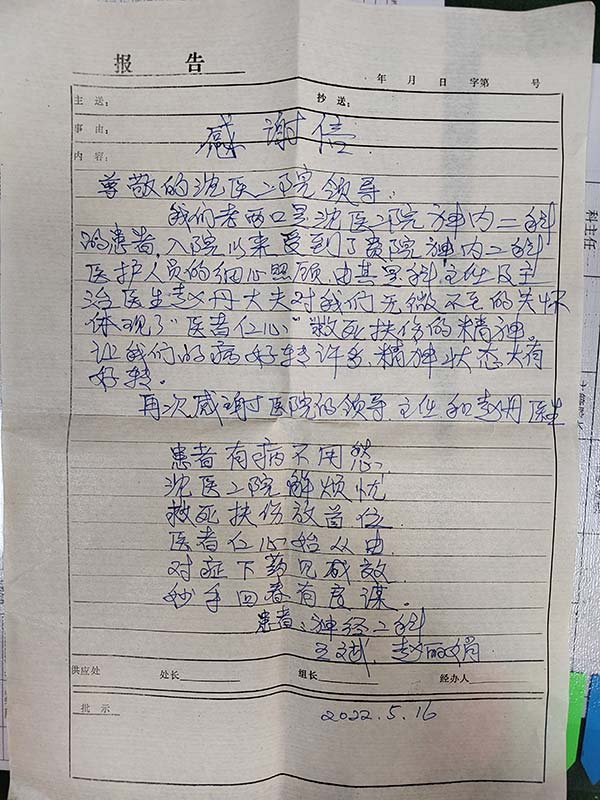 报 告
年 月 日 字第 号
主 送： 抄 送：
事 由：
感 谢 信
内 容：
尊敬的沈医二院领导：
我们老两口是沈医二院神内二科
的患者，入院以来受到了贵院神内二科
医护人员的细心照顾，由其是科主任及主
治医生赵丹大夫对我们无微不至的关怀
体现了“医者仁心”救死扶伤的精神
让我们的病好转许多，精神状态大有
好转。
再次感谢医院的领导、主任和赵丹医生
患者有病不用愁
沈医二院解烦忧
救死扶伤放首位
医者仁心始从由
对症下药见成效
妙手回春有良谋。
患者：神经二科
王斌、赵丽娟
供应处 处长 组长 经办人
批 示
2022.5.16
科主任